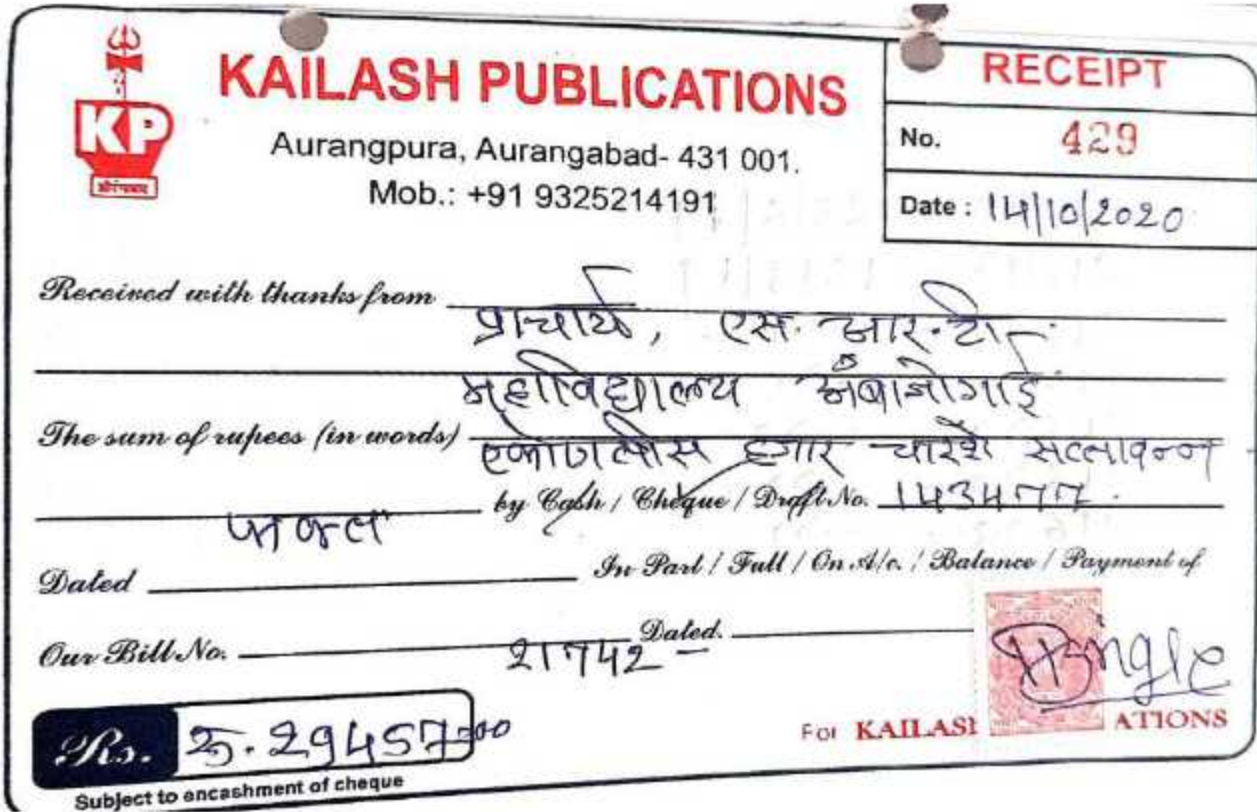 KAILASH PUBLICATIONS
Aurangpura, Aurangabad- 431 001.
Mob.: +91 9325214191
RECEIPT
No. 429
Date : 14/10/2020
KP
औरंगाबाद
Received with thanks from प्राचार्य, एस. आर. टी.
महाविद्यालय अंबाजोगाई
The sum of rupees (in words) एकोणतीस हजार चारशे सत्तावन्न
फक्त by Cash / Cheque / Draft No. 143477.
Dated In Part / Full / On A/c. / Balance / Payment of
Our Bill No. 21742 Dated.
Rs. रु. 29457=00
For KAILASH ATIONS
Subject to encashment of cheque